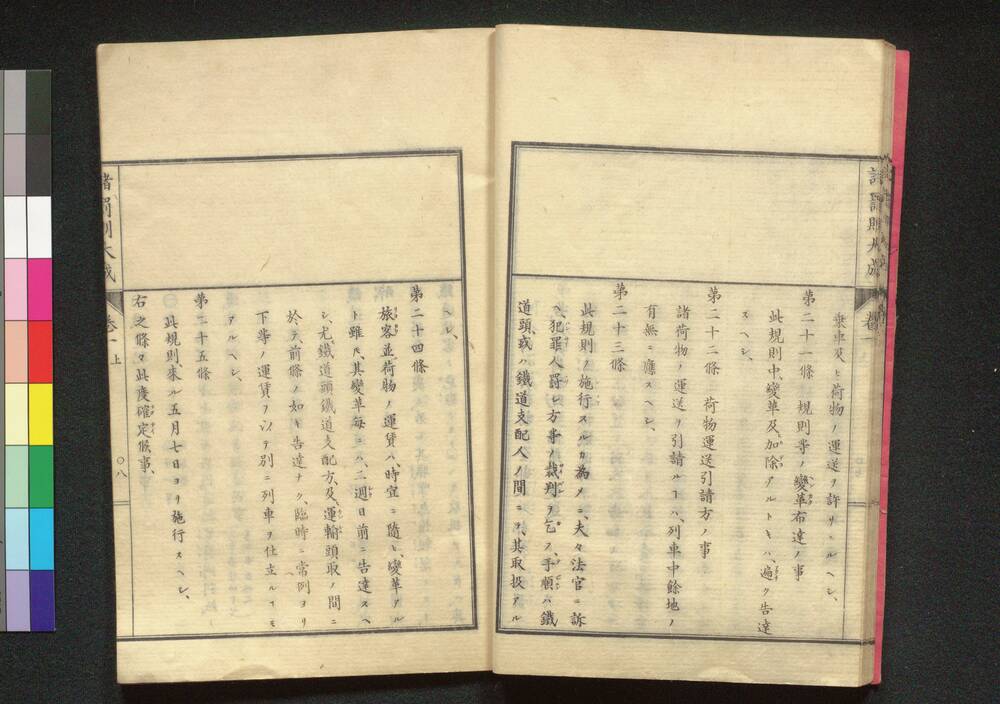 諸罰則大成
卷一
乗車及ヒ荷物ノ運送ヲ許サヽルヘシ、
第二十一條 規則等ノ變革布達ノ事
此規則中、變革及加除アルトキハ、遍ク告達
スヘシ、
第二十二條 荷物運送引請方ノ事
諸荷物ノ運送ヲ引請ルヿハ、列車中餘地ノ
有無ニ應スヘシ、
第二十三條
此規則ヲ施行スルカ為メニ、夫々法官ニ訴
ヘ、犯罪人罰シ方等ノ裁判ヲ乞フ手順ハ鐵
道頭、或ハ鐵道支配人ノ間ニテ、其取扱アル
ヘシ、
第二十四條
旅客並荷物ノ運賃ハ、時宜ニ隨ヒ、變革アル
ト雖𪜈、其變革毎ニハ、二週日前ニ告達スヘ
シ、尤鐵道頭鐵道支配方、及運輸頭取ノ間ニ
於テ、前條ノ如キ告達ナク、臨時ニ常例ヨリ
下等ノ運賃ヲ以テ別ニ列車ヲ仕立ルヿモ
アルヘシ、
第二十五條
此規則來ル五月七日ヨリ施行スヘシ、
右之條々此度確定候事、
諸罰則大成
卷一 上
〇八